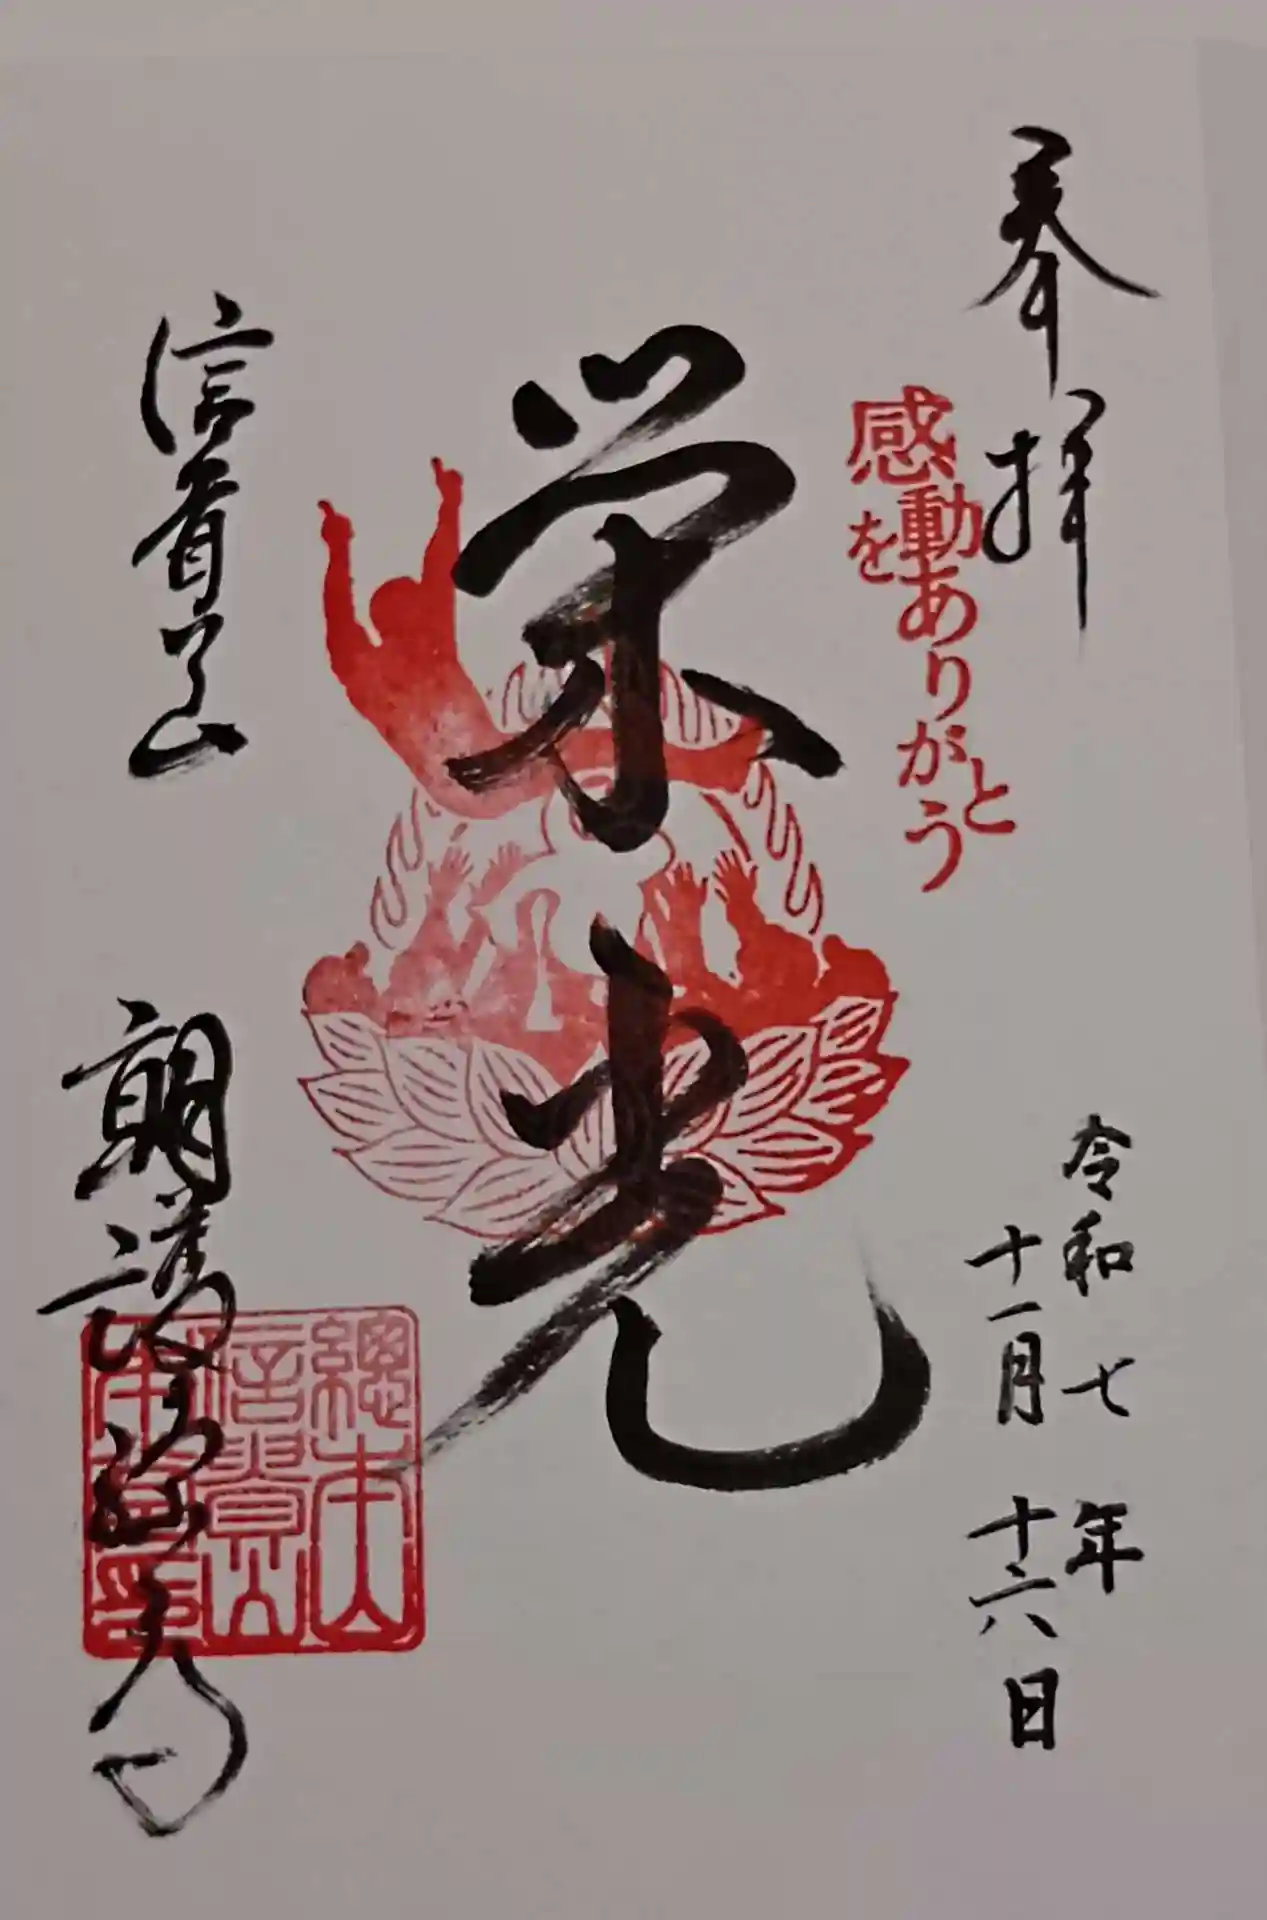 奉拝
感動をありがとう
令和七年
十一月十六日
栄光
信貴山
朝護孫子寺
總本山
信貴山
本堂印